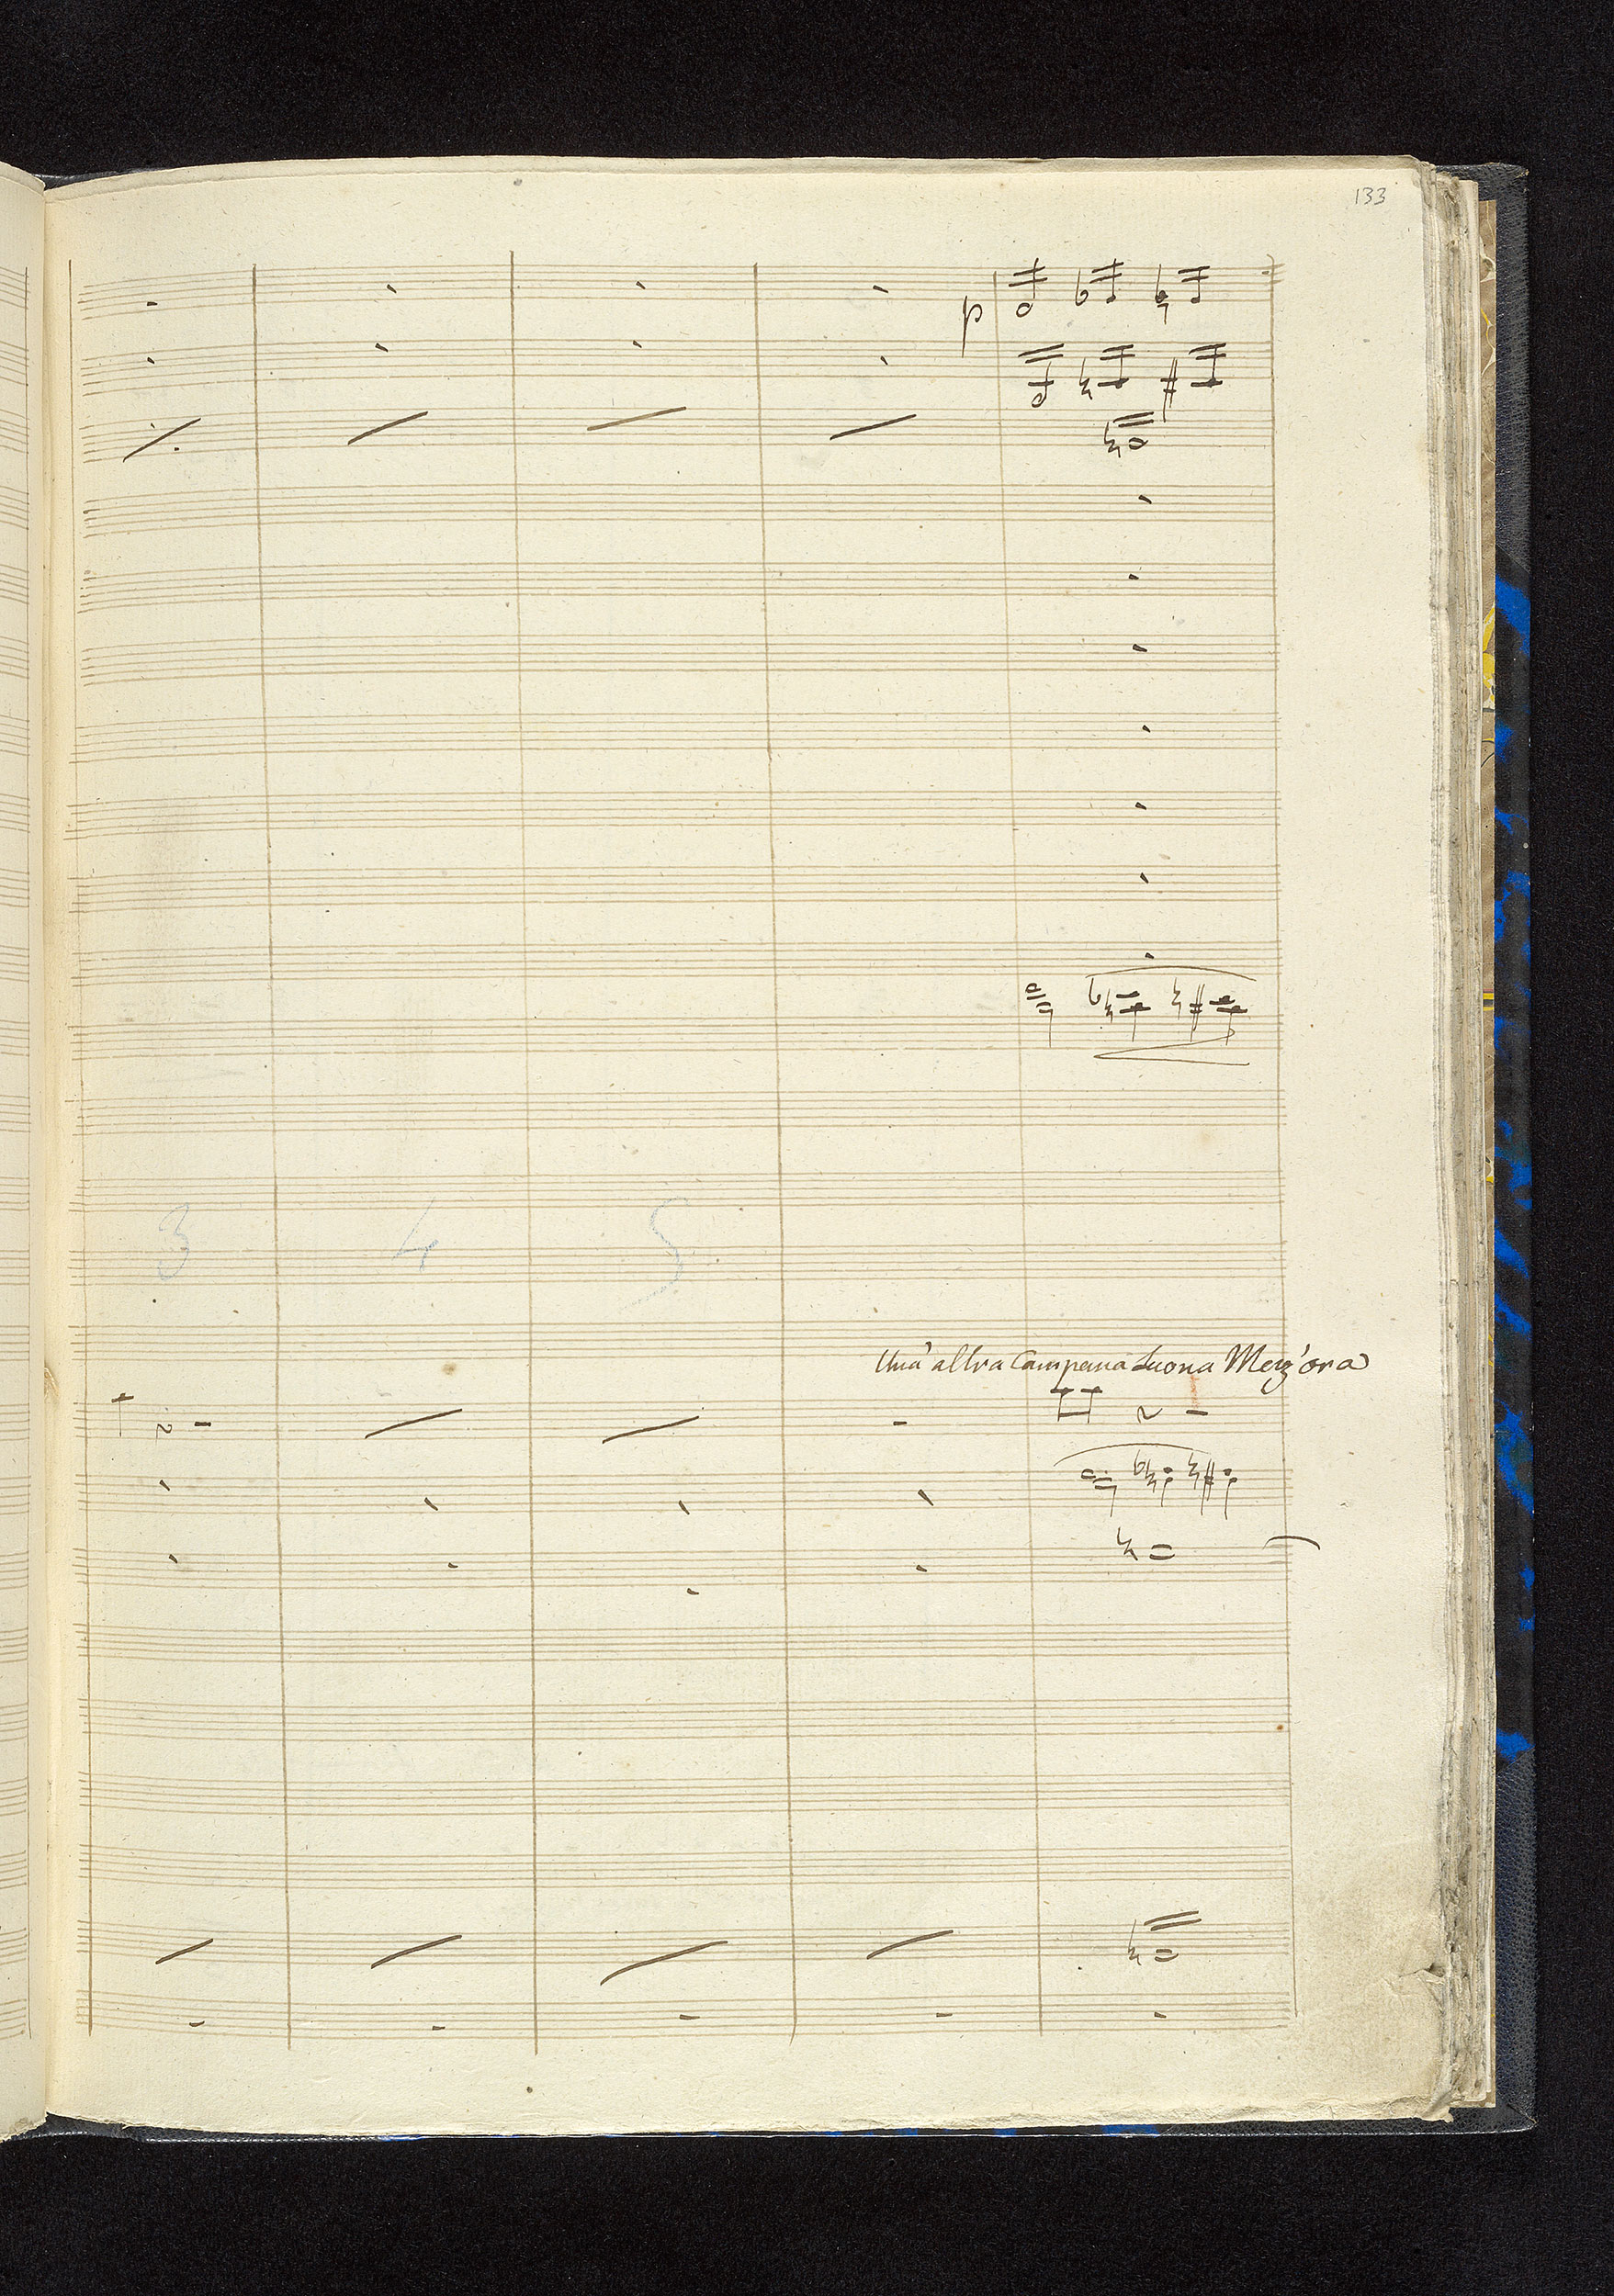 133
p
3 4 5
Una altra Campana Suona Mezz'ora
2